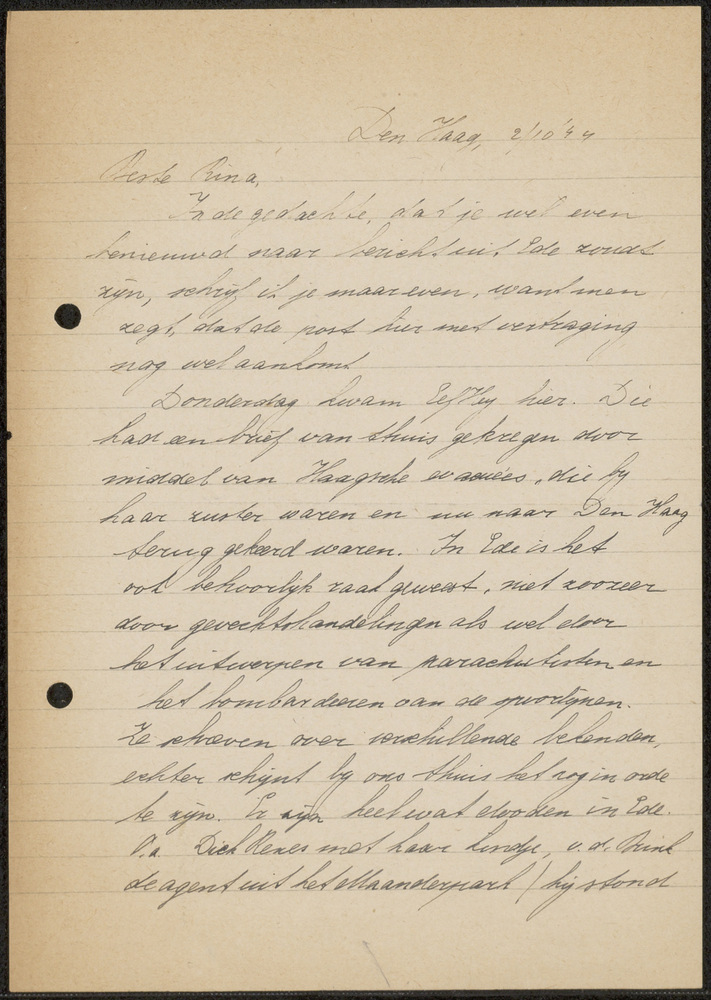 Den Haag, 2/10 '44
Beste Rina,
In de gedachte, dat je wel even
benieuwd naar bericht uit Ede zoudt
zijn, schrijf ik je maar even, want men
zegt, dat de post hier met vertraging
nog wel aankomt
Donderdag kwam Hey hier. Die
had een brief van thuis gekregen door
middel van Haagsche evacués, die by
haar zuster waren en nu naar Den Haag
terug gekeerd waren. In Ede is het
ook behoorlijk raak geweest, niet zoozeer
door gevechtshandelingen als wel door
het uitwerpen van parachutisten en
het bombardeeren van de spoorlijnen.
Ze schreven over verschillende bekenden,
echter schijnt by ons thuis het nog in orde
te zijn. Er zijn heel wat dooden in Ede.
O.a. Dick met haar kindje, v.d. Brink
de agent uit het Maanderpark (hij stond